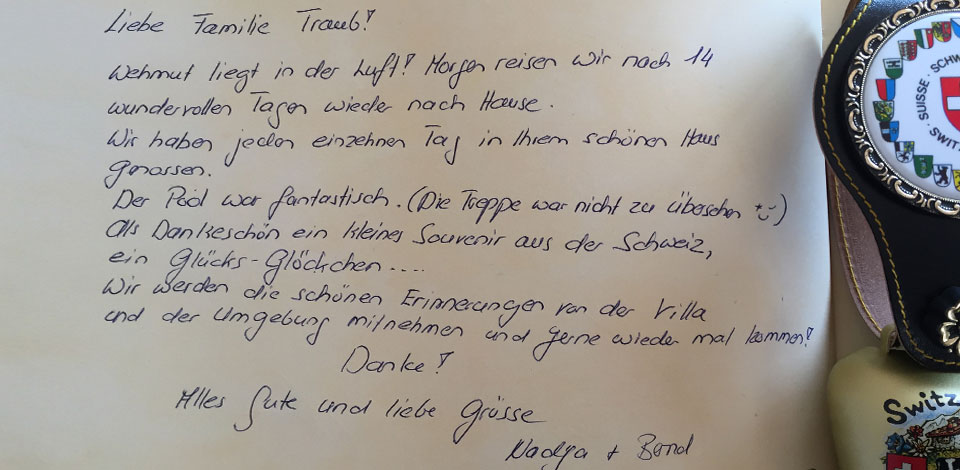 Liebe Familie Traub!
Wehmut liegt in der Luft! Morgen reisen wir nach 14
wundervollen Tagen wieder nach Hause.
Wir haben jeden einzehnen Tag in Ihrem schönen Haus
genossen.
Der Pool war fantastisch. (Die Treppe war nicht zu übersehen)
Als Dankeschön ein kleines Souvenir aus der Schweiz,
ein Glücks-Glöckchen....
Wir werden die schönen Erinnerungen von der Villa
und der Umgebung mitnehmen und gerne wieder mal kommen!
Danke!
Alles Gute und liebe Grüsse
Nadja + Bernd
SUISSE · SCHW
SWITZ
Switz